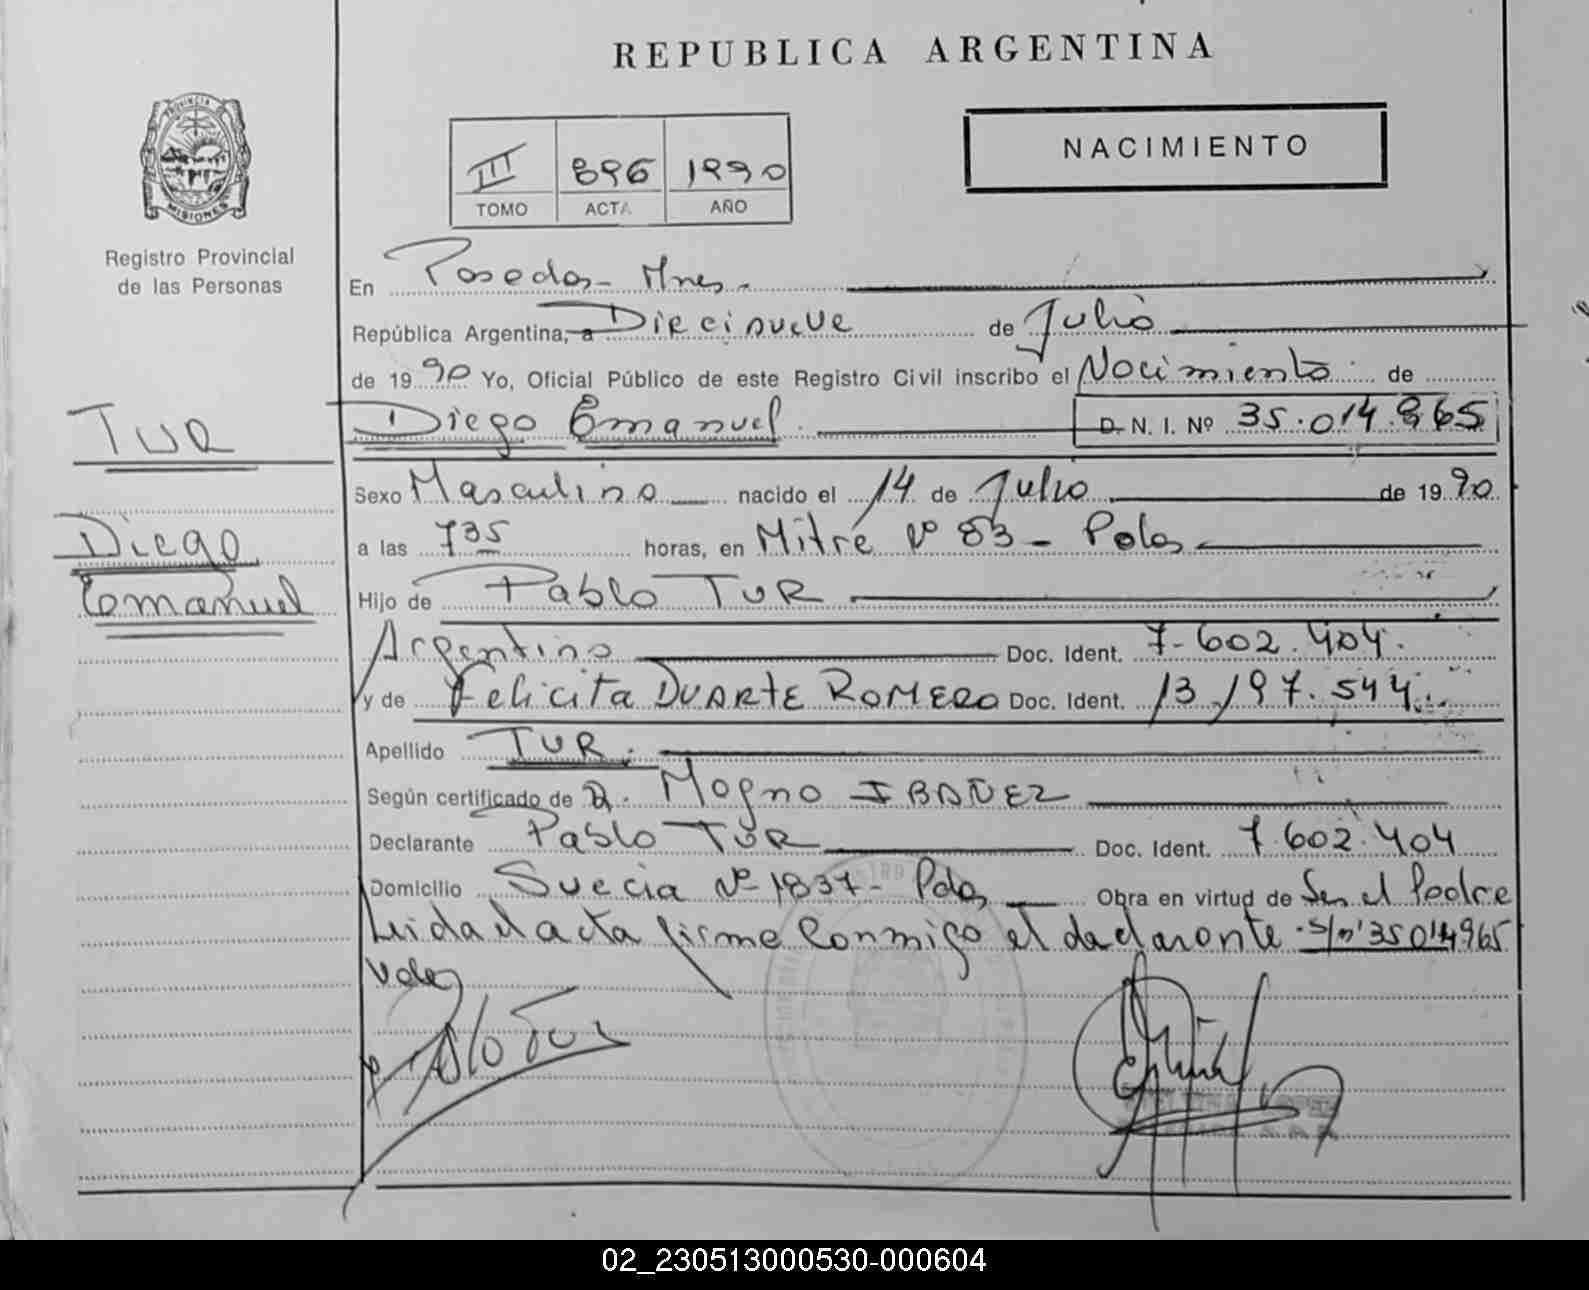 REPUBLICA ARGENTINA
NACIMIENTO
PROVINCIA DE
MISIONES
Registro Provincial
de las Personas
III 896 1990
TOMO ACTA AÑO
En Posadas - Mnes.
República Argentina, a Diecinueve de Julio
de 1990 Yo, Oficial Público de este Registro Civil inscribo el Nacimiento de
TUR
Diego Emanuel D. N. I. Nº 35.014.965
Sexo Masculino nacido el 14 de Julio de 1990
Diego
a las 7 35 horas, en Mitre Nº 83 - Pdas
Emanuel
Hijo de Pablo TUR
Argentino Doc. Ident. 7-602.404.
y de Felicita DUARTE ROMERO Doc. Ident. 13.197.544.
Apellido TUR.
Según certificado de D. Magno IBAÑEZ
Declarante Pablo TUR Doc. Ident. 7.602.404
Domicilio Suecia Nº 1837 - Pdas Obra en virtud de Ser el Padre
Leida el acta firma conmigo el declarante. S/r 35014965
Vale
Pablo Tur
02_230513000530-000604